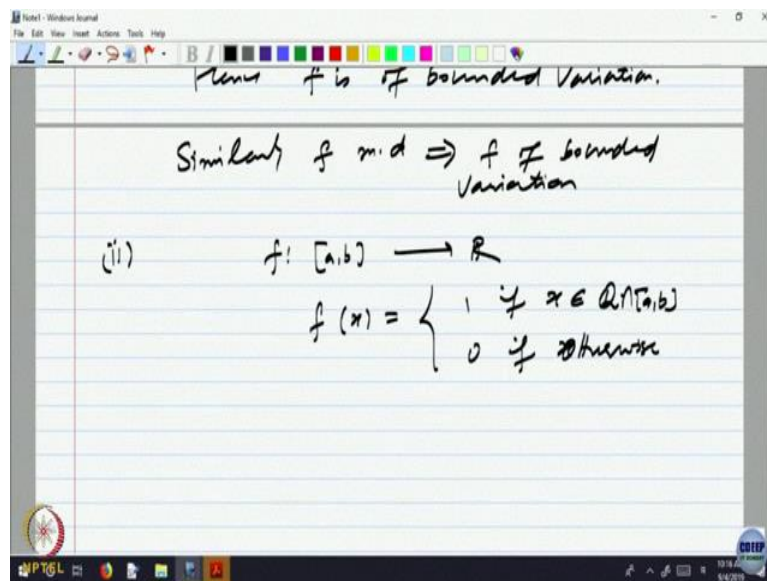 Note1 - Windows Journal
File Edit View Insert Actions Tools Help
Hence f is of bounded variation.
Similarly f m.d ⇒ f of bounded
variation
(ii) f: [a,b] → R
f(x) = { 1 if x ∈ Q∩[a,b]
0 if otherwise
NPTEL
CDEEP
9/4/2019